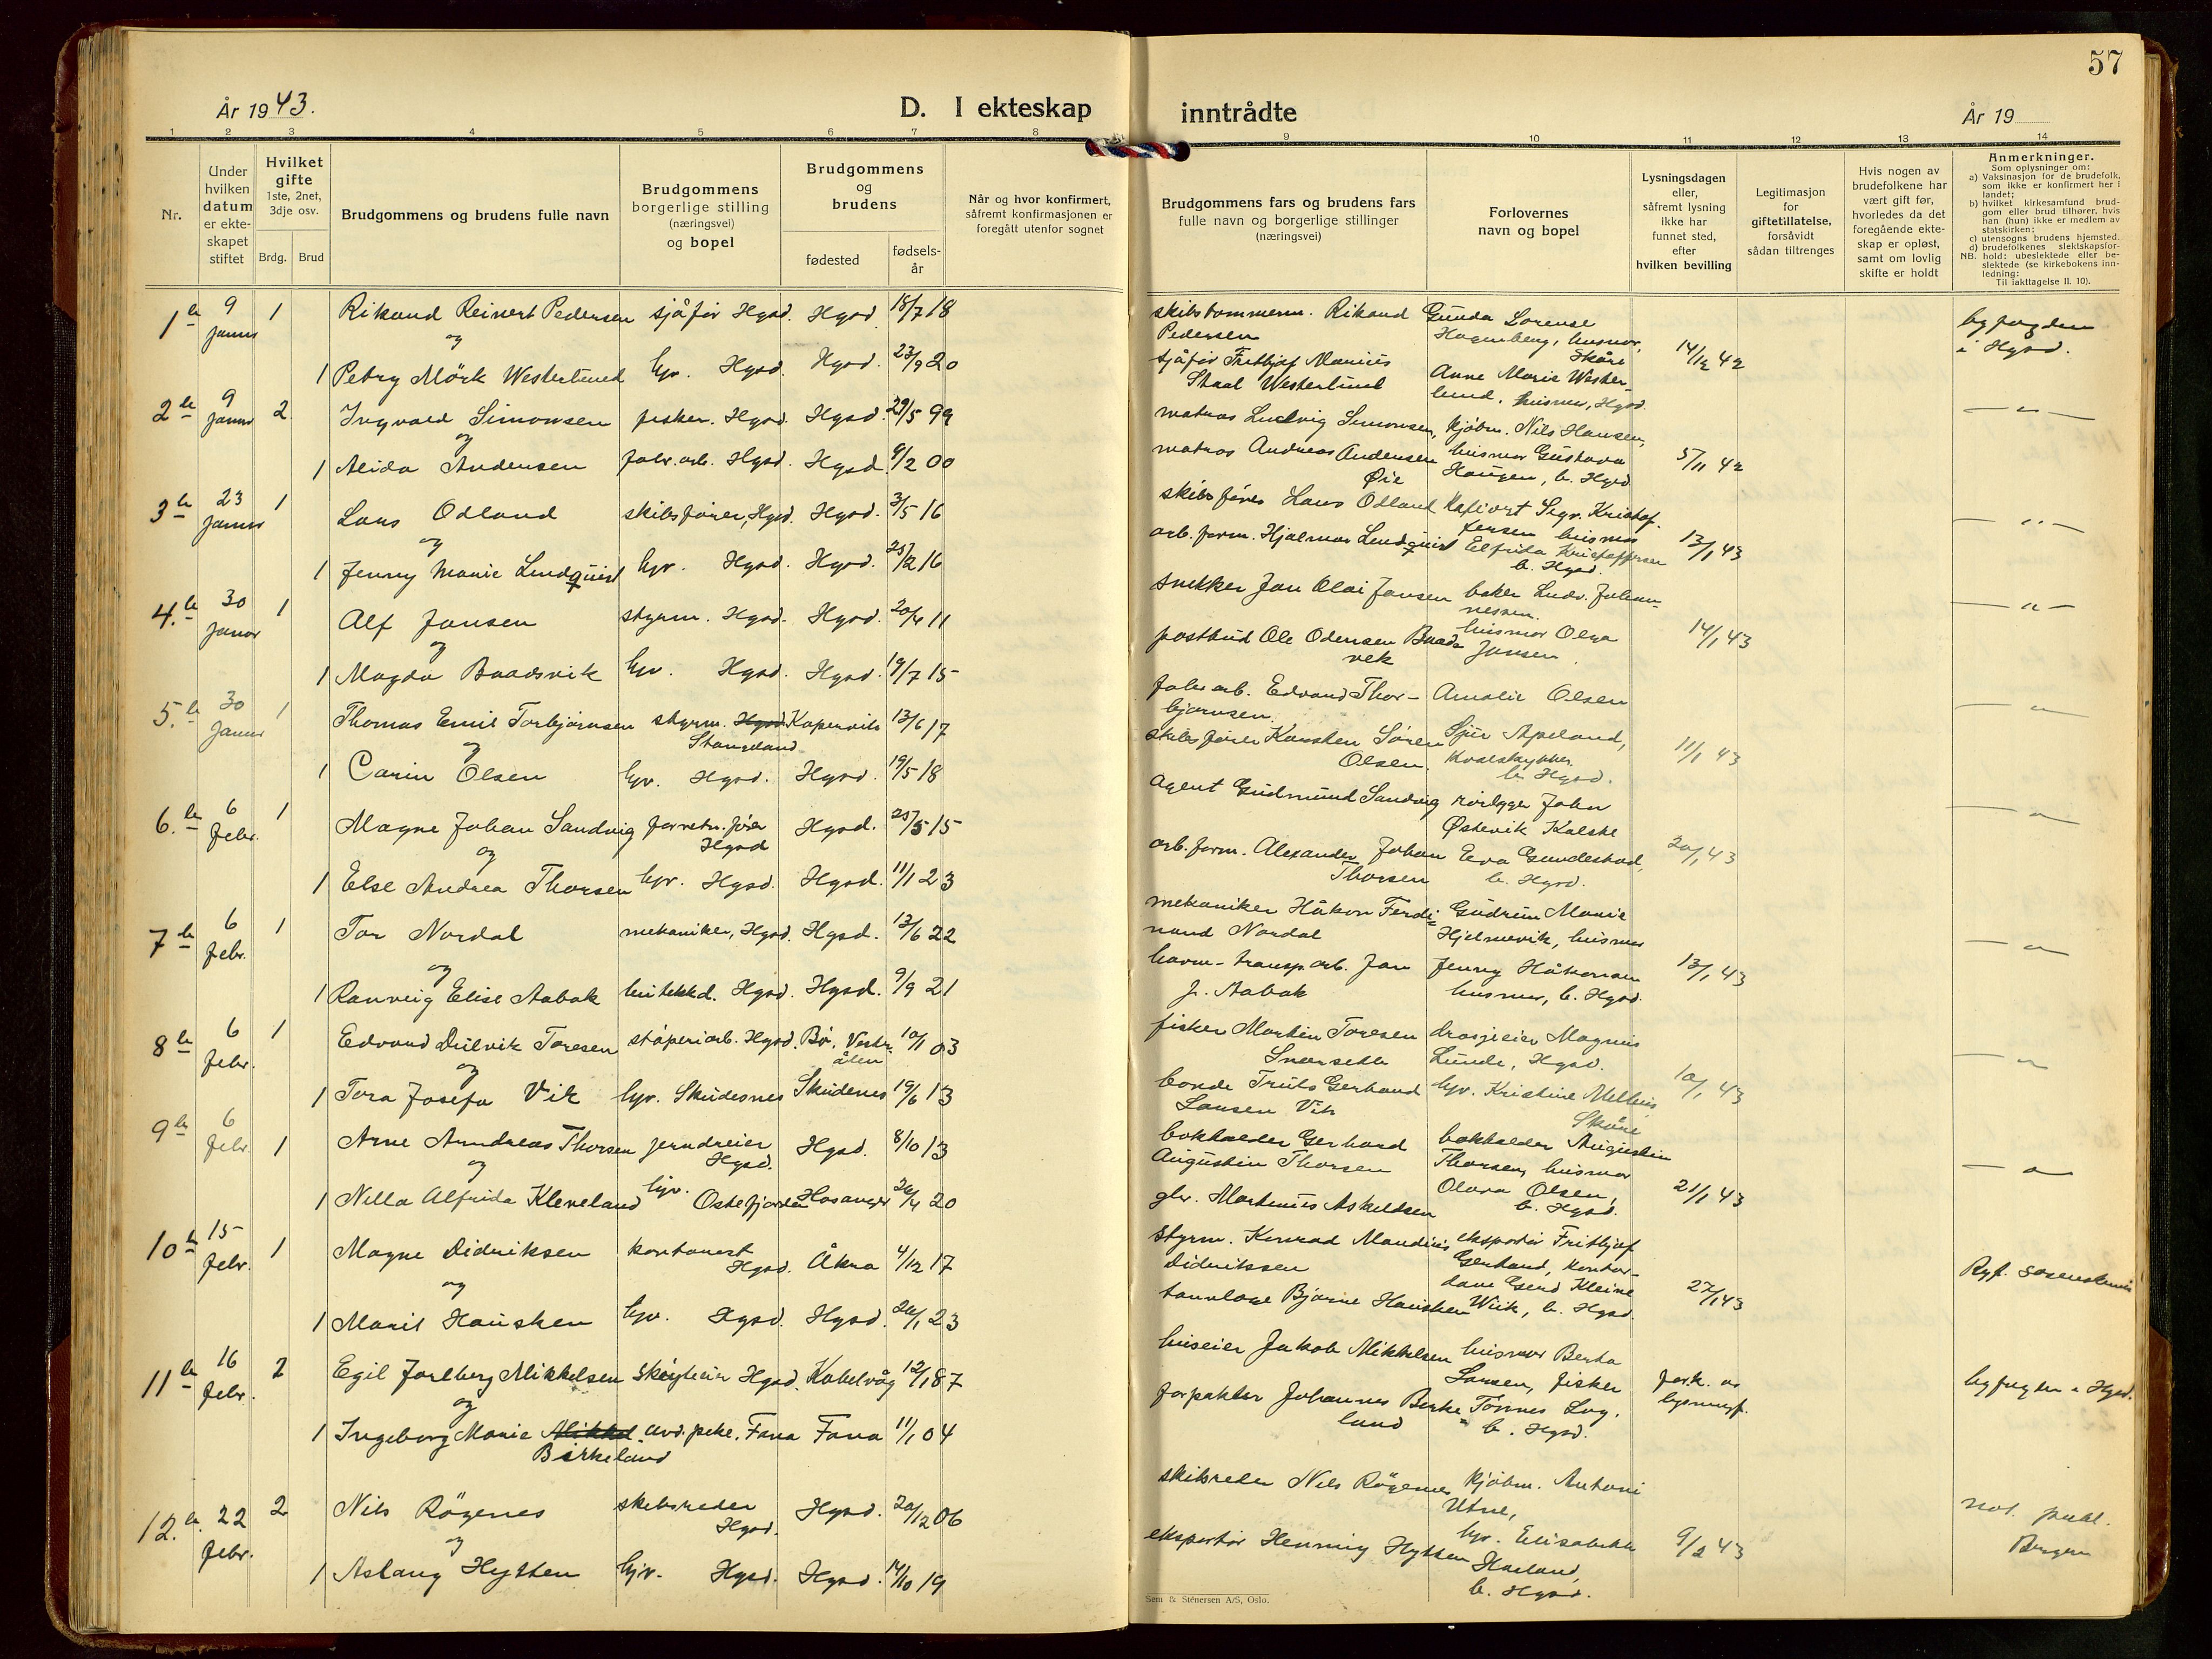 57
År 1943.
D. I ekteskap inntrådte
År 19
1 2 3 4 5 6 7 8 9 10 11 12 13 14
Nr.
Under hvilken datum er ekte-skapet stiftet
Hvilket gifte 1ste, 2net, 3dje osv.
Brdg. Brud
Brudgommens og brudens fulle navn
Brudgommens borgerlige stilling (næringsvei) og bopel
Brudgommens og brudens
fødested
fødsels-år
Når og hvor konfirmert, såfremt konfirmasjonen er foregått utenfor sognet
Brudgommens fars og brudens fars fulle navn og borgerlige stillinger (næringsvei)
Forlovernes navn og bopel
Lysningsdagen eller, såfremt lysning ikke har funnet sted, efter hvilken bevilling
Legitimasjon for giftetillatelse, forsåvidt sådan tiltrenges
Hvis nogen av brudefolkene har vært gift før, hvorledes da det foregående ekte-skap er opløst, samt om lovlig skifte er holdt
Anmerkninger.
Som oplysninger om:
a) Vaksinasjon for de brudefolk, som ikke er konfirmert her i landet;
b) hvilket kirkesamfund brud-gom eller brud tilhører, hvis han (hun) ikke er medlem av statskirken;
c) utensogns brudens hjemsted.
d) brudefolkenes slektskapsfor-hold: ubeslektede eller be-slektede (se kirkebokens inn-ledning:
NB.
Til iakttagelse II. 10).
1 9 Januar 1 Rikard Reinert Pedersen sjåfør Hgsd. Hgsd 18/7 18
skibstømmerm. Rikard Pedersen
Gunda Lorense Hagenberg, husmor, Skåre
14/12 42
byfogden i Hgsd.
og
1 Petry Mörk Westerlund hjv. Hgsd. Hgsd. 23/9 20
sjåfør Frithjof Marius Staal Westerlund
Anne Marie Westerlund, husmor, Hgsd.
2 9 Januar 2 Ingvald Simonsen fisker. Hgsd. Hgsd. 29/5 99
matros Ludvig Simonsen, kjøbm. Nils Hansen,
— " —
og
1 Alida Andersen fabr.arb. Hgsd. Hgsd. 9/2 00
matros Andreas Andersen Øie
husmor Gustava Haugen, b. Hgsd
5/11 42
3 23 Januar 1 Lars Odland skibsfører, Hgsd. Hgsd. 3/5 16
skibsfører Lars Odland
Sigv. Kristoffersen
— " —
og
1 Jenny Marie Lindquist hjv. Hgsd. Hgsd. 25/12 16
arb.form. Hjalmar Lindquist
husmor Elfrida Kristoffersen b. Hgsd.
13/1 43
4. 30 Januar 1 Alf Jansen styrm. Hgsd. Hgsd. 20/4 11
snekker Jan Olai Jansen
baker Ludv. Johannessen.
— " —
og
1 Magda Baadsvik hjv. Hgsd. Hgsd. 19/7 15
postbud Ole Odensen Baadsvik
husmor Olga Jansen.
14/1 43
5. 30 Januar 1 Thomas Emil Torbjørnsen styrm. Hgsd Stangeland Kopervik 13/6 17
fabr.arb. Edvard Thorbjørnsen.
Amalie Olsen
— " —
og
1 Carin Olsen hjv. Hgsd. Hgsd. 19/5 18
skibsfører Karsten Søren Olsen.
Apeland, b. Hgsd.
11/1 43
6. 6 febr. 1 Magne Johan Sandvig forretn.fører Hgsd Hgsd. 25/5 15
Agent Gudmund Sandvig
rørlegger John Østevik
— " —
og
1 Else Andrea Thorsen hjv. Hgsd. Hgsd. 11/1 23
arb.form. Alexander Johan Thorsen
Eva Gundestad, b. Hgsd.
20/1 43
7 6 febr. 1 Tor Nordal mekaniker, Hgsd. Hgsd. 13/6 22
mekaniker Håkon Ferdinand Nordal
Gudrun Marie Hjelmervik, husmor
— " —
og
1 Ranveig Elise Aabak Hgsd. Hgsd. 9/9 21
havn-transp.arb. Jan J. Aabak
Jenny Håkonsen husmor, b. Hgsd.
13/1 43
8 6 febr. 1 Edvard Dulvik Toresen støperiarb. Hgsd. Bø, Vesterålen 10/1 03
fisker Martin Toresen
drosjeeier Magnus Lunde, Hgsd.
— " —
og
1 Tora Josefa Vik hjv. Skudesnes Skudenes 19/6 13
bonde Truls Gerhard Larsen Vik
hjv. Kristine Skåre
10/1 43
9 6 febr 1 Arne Arndreas Thorsen jerndreier Hgsd. Hgsd. 8/10 13
bokholder Gerhard Augustin Thorsen
bokholder Augustin Thorsen, husmor
— " —
og
1 Nilla Alfrida Kleveland hjv. Ostefjorden Hosanger 20/4 20
gbr. Martinus Askeldsen
Olava Olsen, b. Hgsd.
21/1 43
10 15 febr. 1 Magne Didriksen kontorist Hgsd. Åkra 4/12 17
styrm. Konrad Maudius Didriksen
ekspeditør Frithjof Gerhard,
og
1 Marit Hausken hjv. Hgsd. Hgsd. 20/1 23
tannlæge Bjarne Hausken
kontordame Gerd Kleine Wiik, b. Hgsd.
27/1 43
11 16 febr. 2 Egil Jarlberg Mikkelsen Hgsd. Kabelvåg 12/1 87
huseier Jakob Mikkelsen
husmor Berta Larsen, fisker
byfogden i Hgsd.
og
1 Ingeborg Marie Mikkel Birkeland Fana Fana 11/1 04
forpakter Johannes Birkeland
Tønnes b. Hgsd.
12. 22 febr. 2 Nils Rögenes skibsreder Hgsd. Hgsd. 20/12 06
skibsreder Nils Rögenes
kjøbm. Antoni Utne,
not. publ. Bergen
og
1 Aslaug Hytten hjv. Hgsd. Hgsd. 14/10 19
eksportør Henning Hytten
hjv. Elisabeth Haaland, b. Hgsd.
9/2 43
Sem & Stenersen A/S, Oslo.